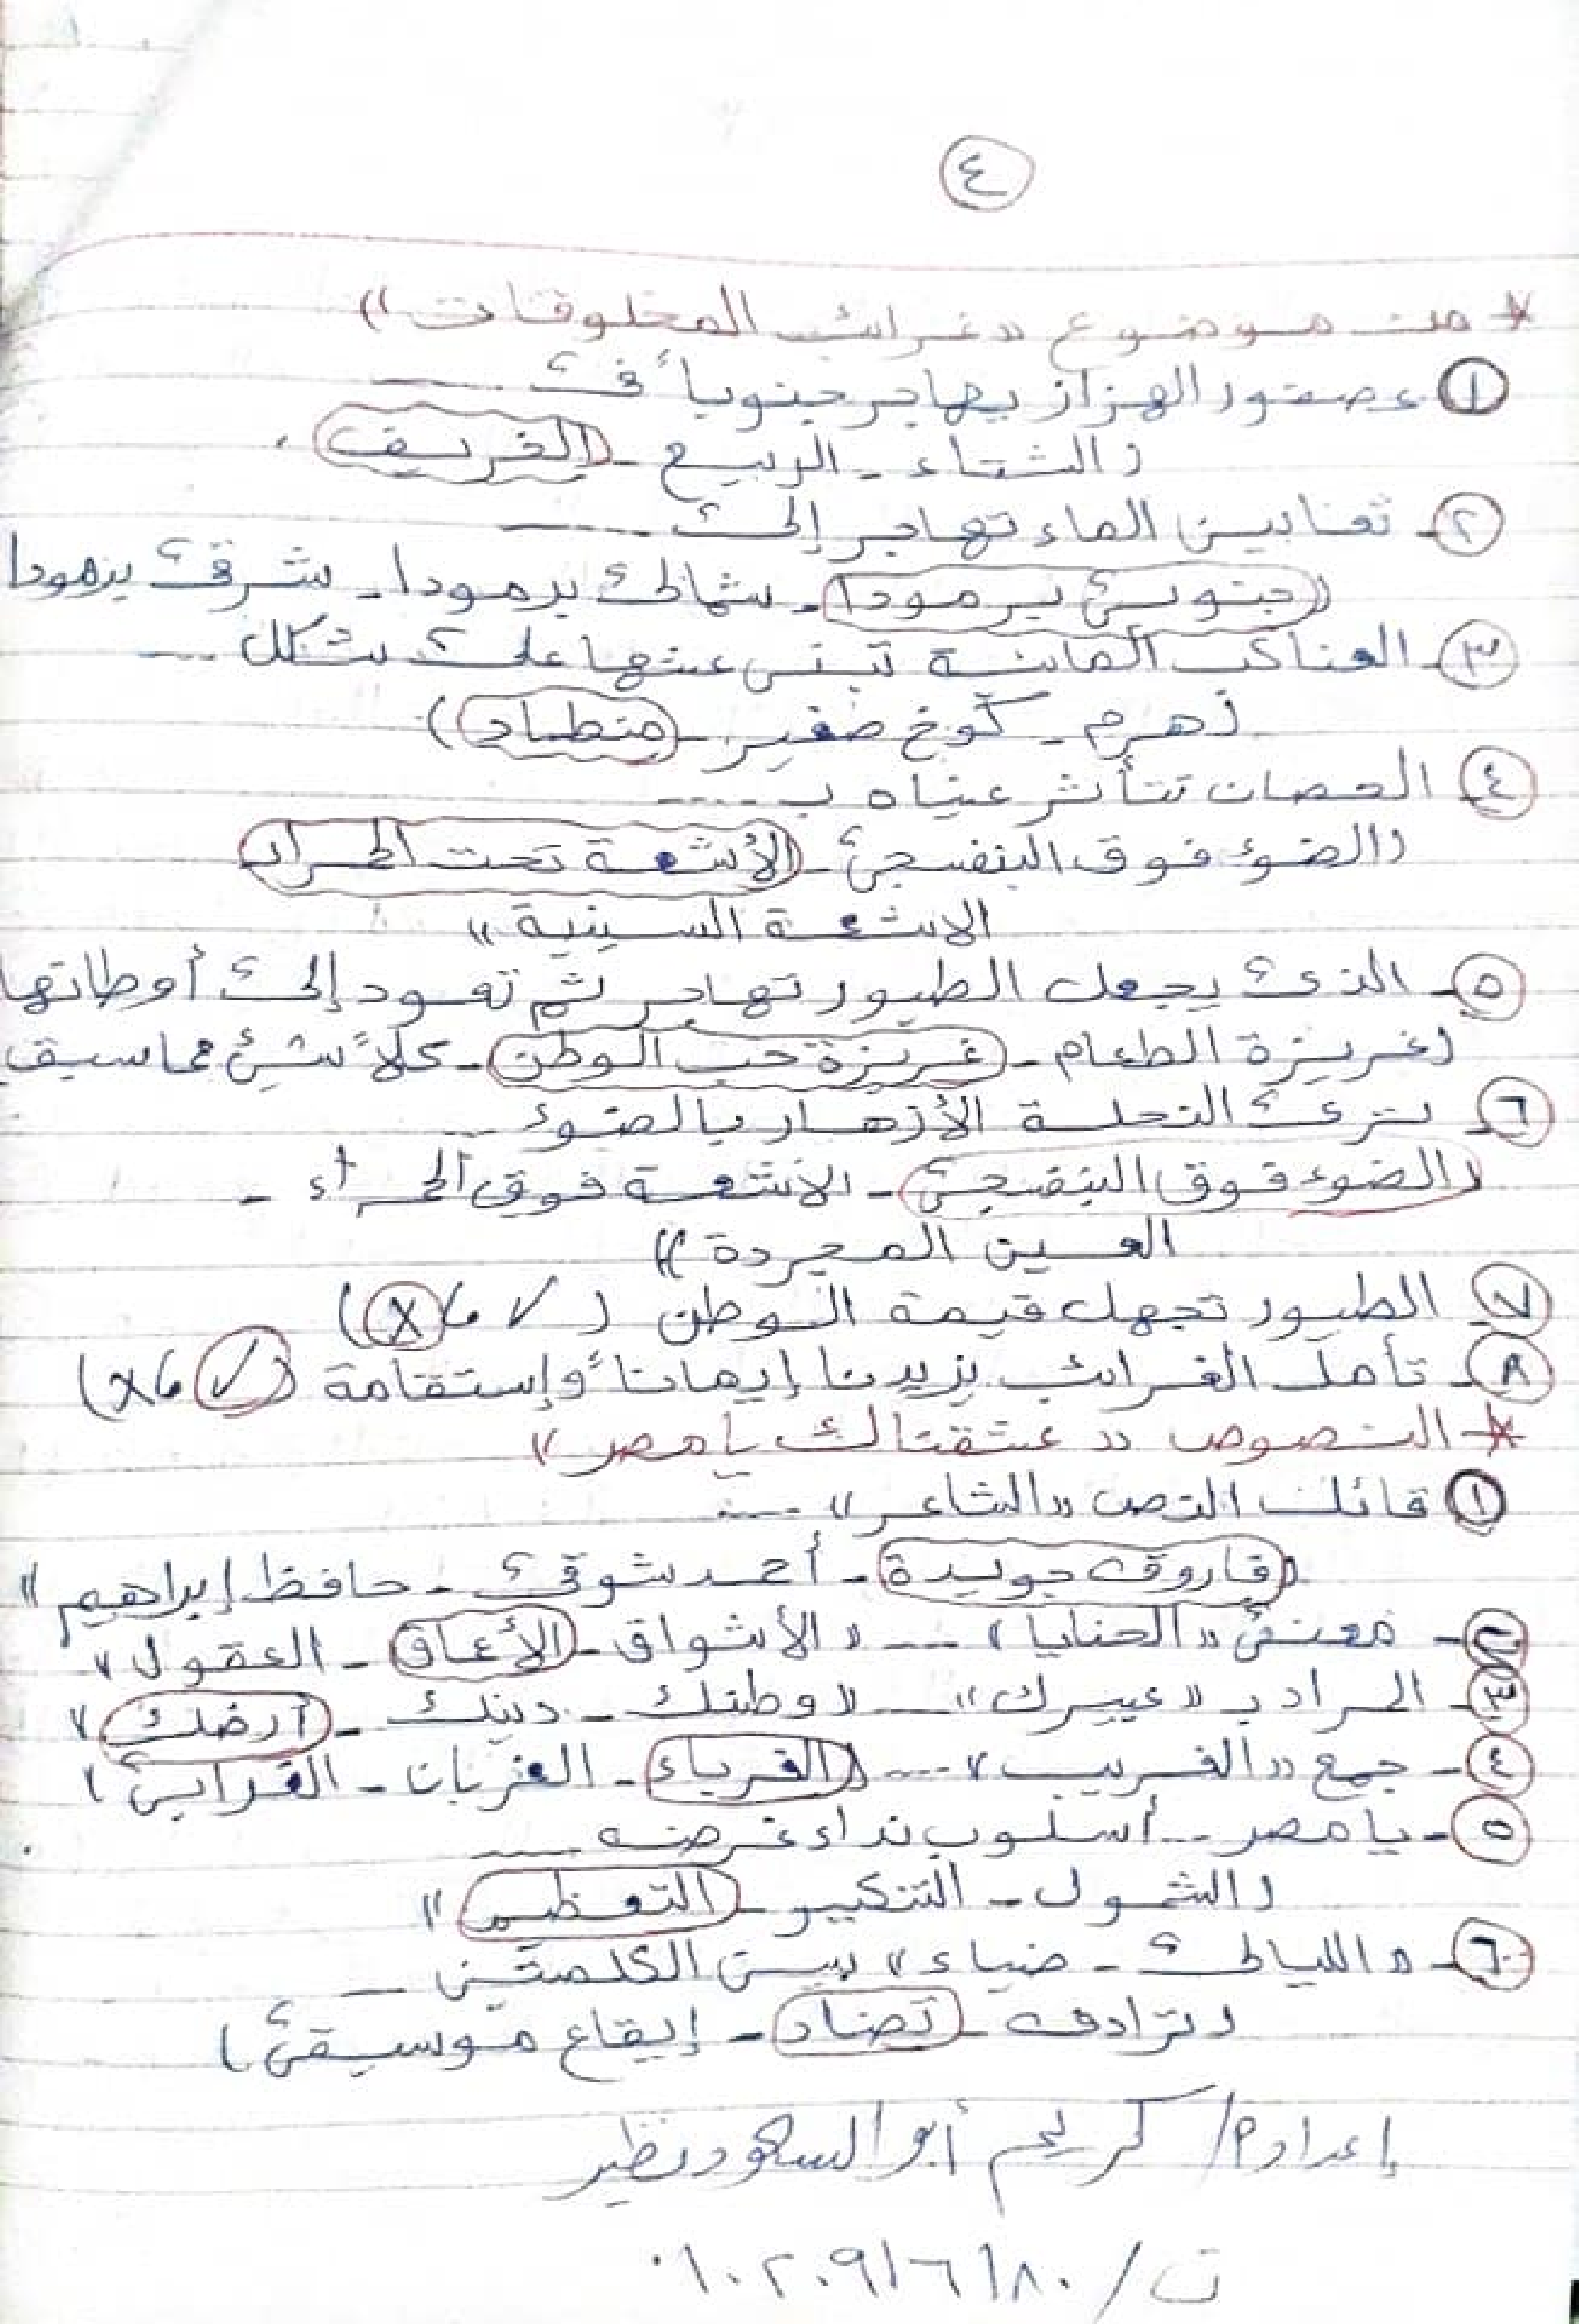 ٤
* من موضوع «غرائب المخلوقات»
١ عصفور الهزاز يهاجر جنوباً فى ....
(الشتاء - الربيع - الخريف
٢- ثعابين الماء تهاجر إلى ....
(جنوبى برمودا - شمالى برمودا - شرقى برمودا
٣- العناكب المائية تبنى عشها على شكل ....
(هرم - كوخ صغير - منطاد)
٤- الحصان تتأثر عيناه ب ....
(الضوء فوق البنفسجى - الأشعة تحت الحمراء
الاشعة السينية»
٥- الذى يجعل الطيور تهاجر ثم تعود إلى أوطانها
(غريزة الطعام - غريزة حب الوطن - كلاً شئ مما سبق
٦- ترى النحلة الأزهار بالضوء ...
(الضوء فوق البنفسجى - الأشعة فوق الحمراء -
العين المجردة»
٧- الطيور تجهل قيمة الوطن (✓ ، X)
٨- تأمل الغرائب يزيدنا إيماناً وإستقامة (✓ ، X)
* النصوص «عشقناك يا مصر»
١ قائل النص «الشاعر» ....
(فاروق جويدة - أحمد شوقى - حافظ إبراهيم»
٢- معنى «الحنايا» ... «الأشواق - الأعماق - العقول»
٣- المراد ب «عبيرك» ... «وطنك - دينك - أرضك»
٤- جمع «الغريب» .... (الغرباء - الغربان - الغرابى)
٥- يا مصر ... أسلوب نداء غرضه ....
(الشمول - التنكير - التعظيم»
٦- «الليالى - ضياء» بين الكلمتين ...
(ترادف - تضاد - إيقاع موسيقى)
إعداد م/ كريم أبو السعود نظير
ت/ ٠١٠٢٠٩١٦١٨٠